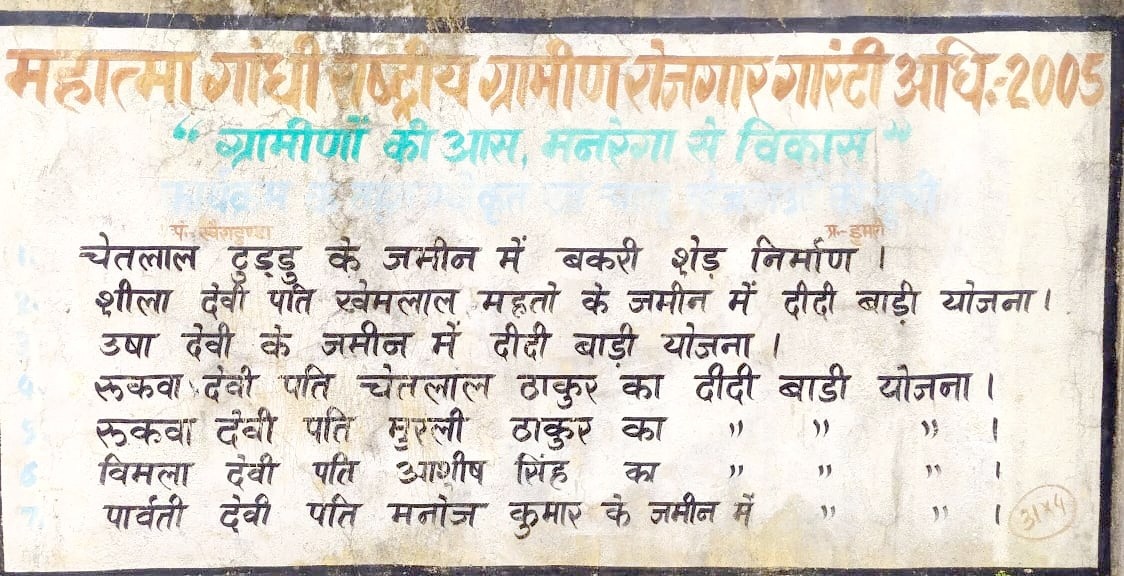 महात्मा गांधी राष्ट्रीय ग्रामीण रोजगार गारंटी अधि.-2005
“ ग्रामीणों की आस, मनरेगा से विकास ”
पं.- प्र.- डुमरी
1. चेतलाल टुड्डु के जमीन में बकरी शेड़ निर्माण ।
2. शीला देवी पति खेमलाल महतो के जमीन में दीदी बाड़ी योजना ।
3. उषा देवी के जमीन में दीदी बाड़ी योजना ।
4. रूकवा देवी पति चेतलाल ठाकुर का दीदी बाडी योजना ।
5. रूकवा देवी पति मुरली ठाकुर का " " " ।
6 विमला देवी पति आशीष सिंह का " " " ।
7. पार्वती देवी पति मनोज कुमार के जमीन में " " ।
31x4